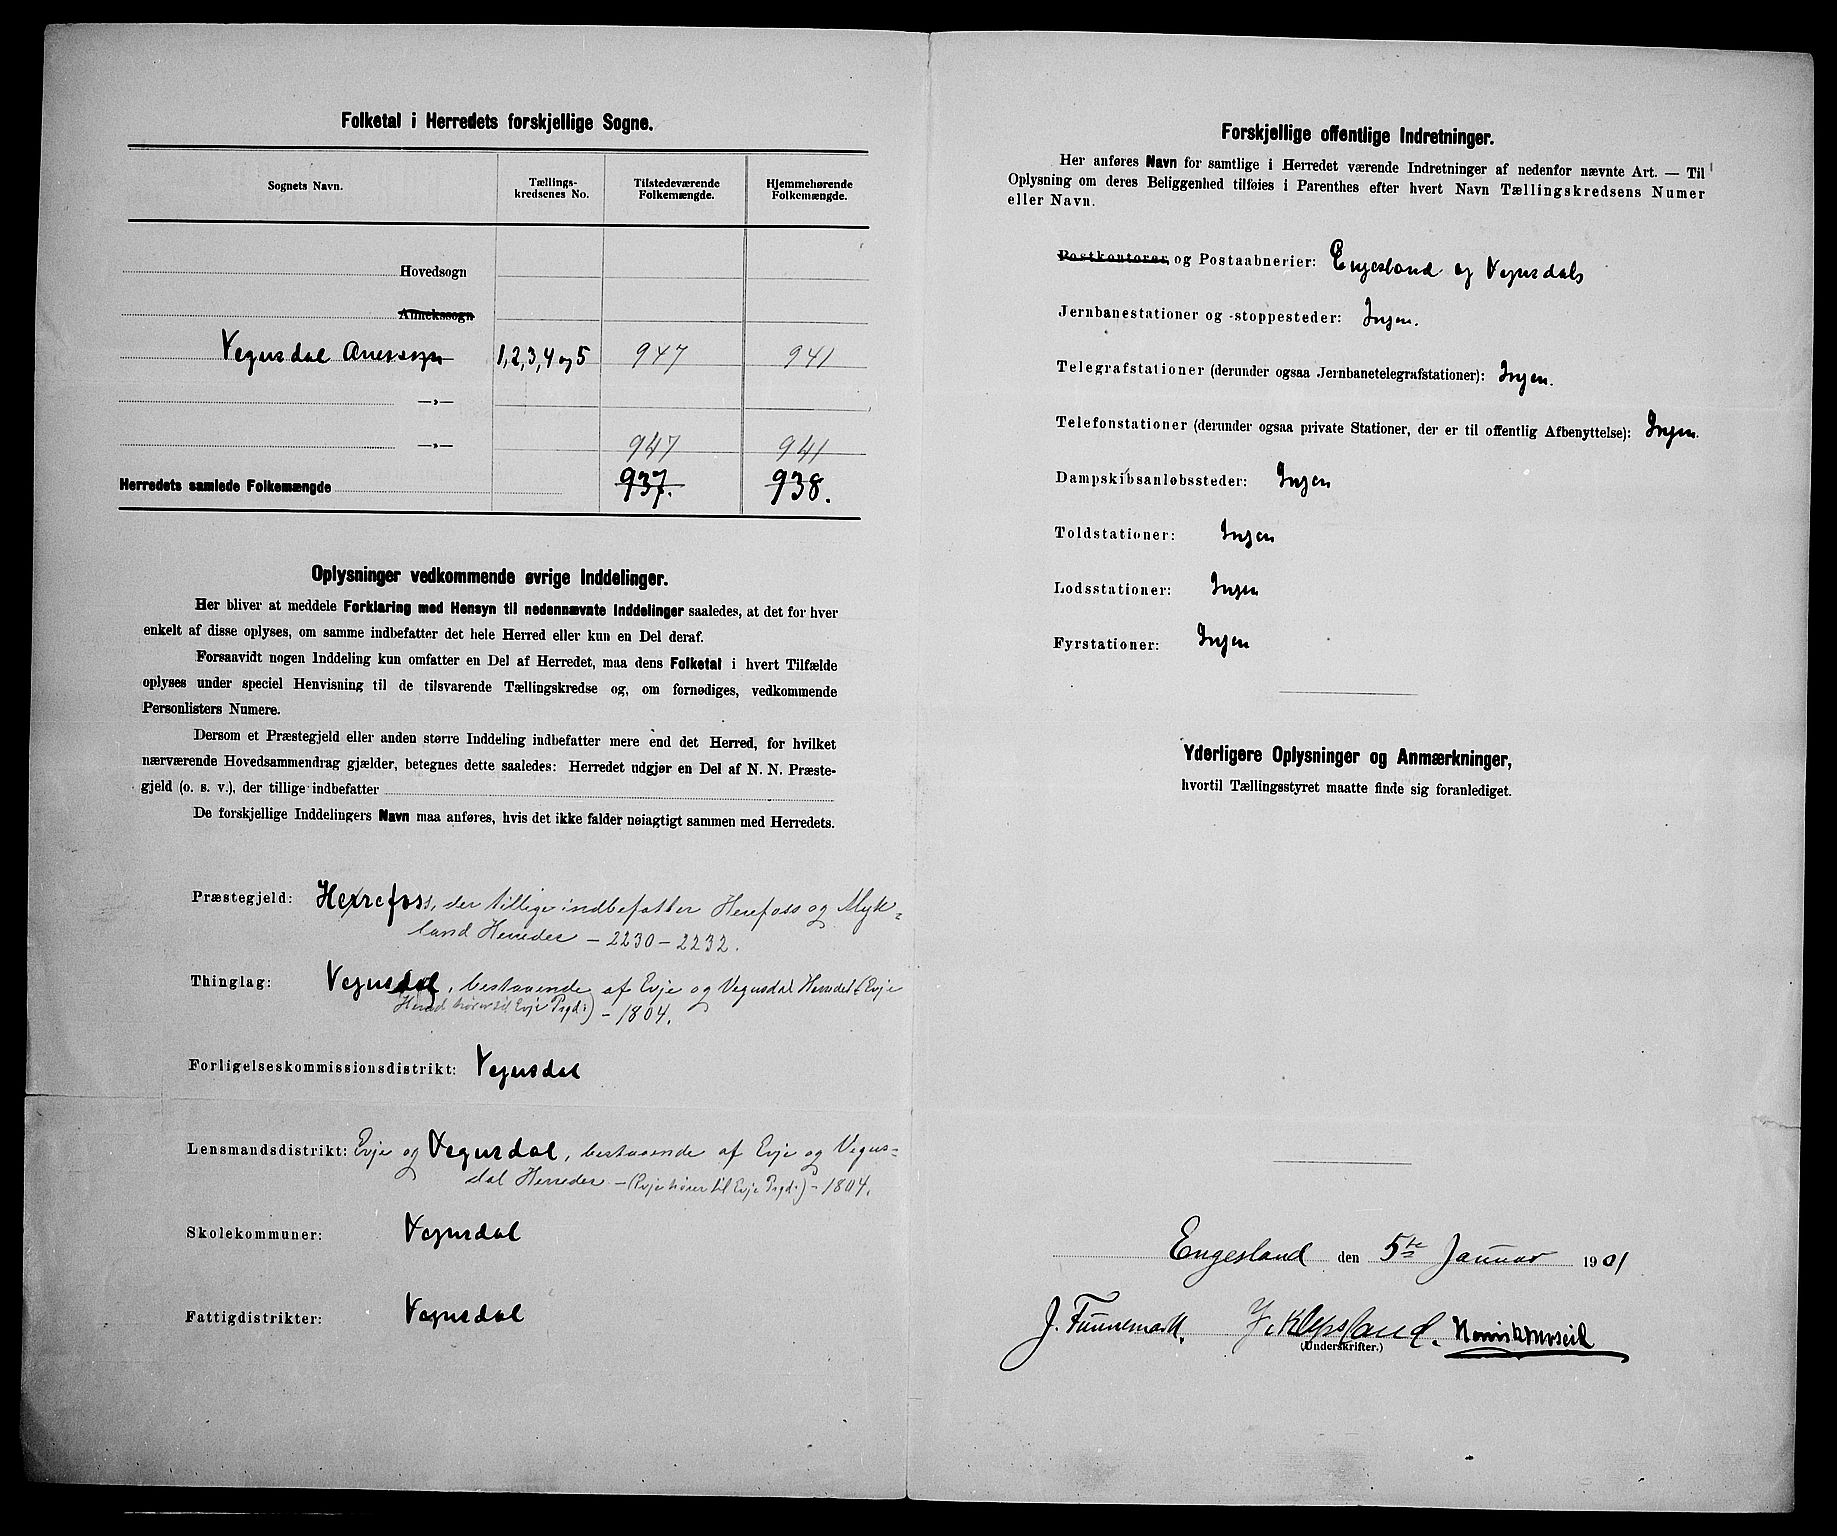 Folketal i Herredets forskjellige Sogne.
Sognets Navn.
Tællings-
kredsenes No.
Tilstedeværende
Folkemængde.
Hjemmehørende
Folkemængde.
Hovedsogn
Annekssogn
Vegusdal Anexsogn 1,2,3,4 og 5 947 941
—„—
—„— 947 941
Herredets samlede Folkemængde 937. 938.
Oplysninger vedkommende øvrige Inddelinger.
Her bliver at meddele Forklaring med Hensyn til nedennævnte Inddelinger saaledes, at det for hver
enkelt af disse oplyses, om samme indbefatter det hele Herred eller kun en Del deraf.
Forsaavidt nogen Inddeling kun omfatter en Del af Herredet, maa dens Folketal i hvert Tilfælde
oplyses under speciel Henvisning til de tilsvarende Tællingskredse og, om fornødiges, vedkommende
Personlisters Numere.
Dersom et Præstegjeld eller anden større Inddeling indbefatter mere end det Herred, for hvilket
nærværende Hovedsammendrag gjælder, betegnes dette saaledes: Herredet udgjør en Del af N. N. Præste-
gjeld (o. s. v.), der tillige indbefatter
De forskjellige Inddelingers Navn maa anføres, hvis det ikke falder nøiagtigt sammen med Herredets.
Præstegjeld: Herrefoss, der tillige indbefatter Herefoss og Myk-
land Herreder – 2230 – 2232.
Thinglag: Vegusdal, bestaaende af Evje og Vegusdal Herreder (Evje
Herred hører til Evje Prgd:) – 1804.
Forligelseskommissionsdistrikt: Vegusdal
Lensmandsdistrikt: Evje og Vegusdal, bestaaende af Evje og Vegus-
dal Herreder – (Evje hører til Evje Prgd:) – 1804.
Skolekommuner: Vegusdal
Fattigdistrikter: Vegusdal
Forskjellige offentlige Indretninger.
Her anføres Navn for samtlige i Herredet værende Indretninger af nedenfor nævnte Art. — Til
Oplysning om deres Beliggenhed tilføies i Parenthes efter hvert Navn Tællingskredsens Numer
eller Navn.
Postkontorer og Postaabnerier: Engesland og Vegusdals
Jernbanestationer og -stoppesteder: Ingen.
Telegrafstationer (derunder ogsaa Jernbanetelegrafstationer): Ingen.
Telefonstationer (derunder ogsaa private Stationer, der er til offentlig Afbenyttelse): Ingen.
Dampskibsanløbssteder: Ingen
Toldstationer: Ingen
Lodsstationer: Ingen
Fyrstationer: Ingen
Yderligere Oplysninger og Anmærkninger,
hvortil Tællingsstyret maatte finde sig foranlediget.
Engesland den 5te Januar 1901
J. Tunnemark. Klepsland.
(Underskrifter.)